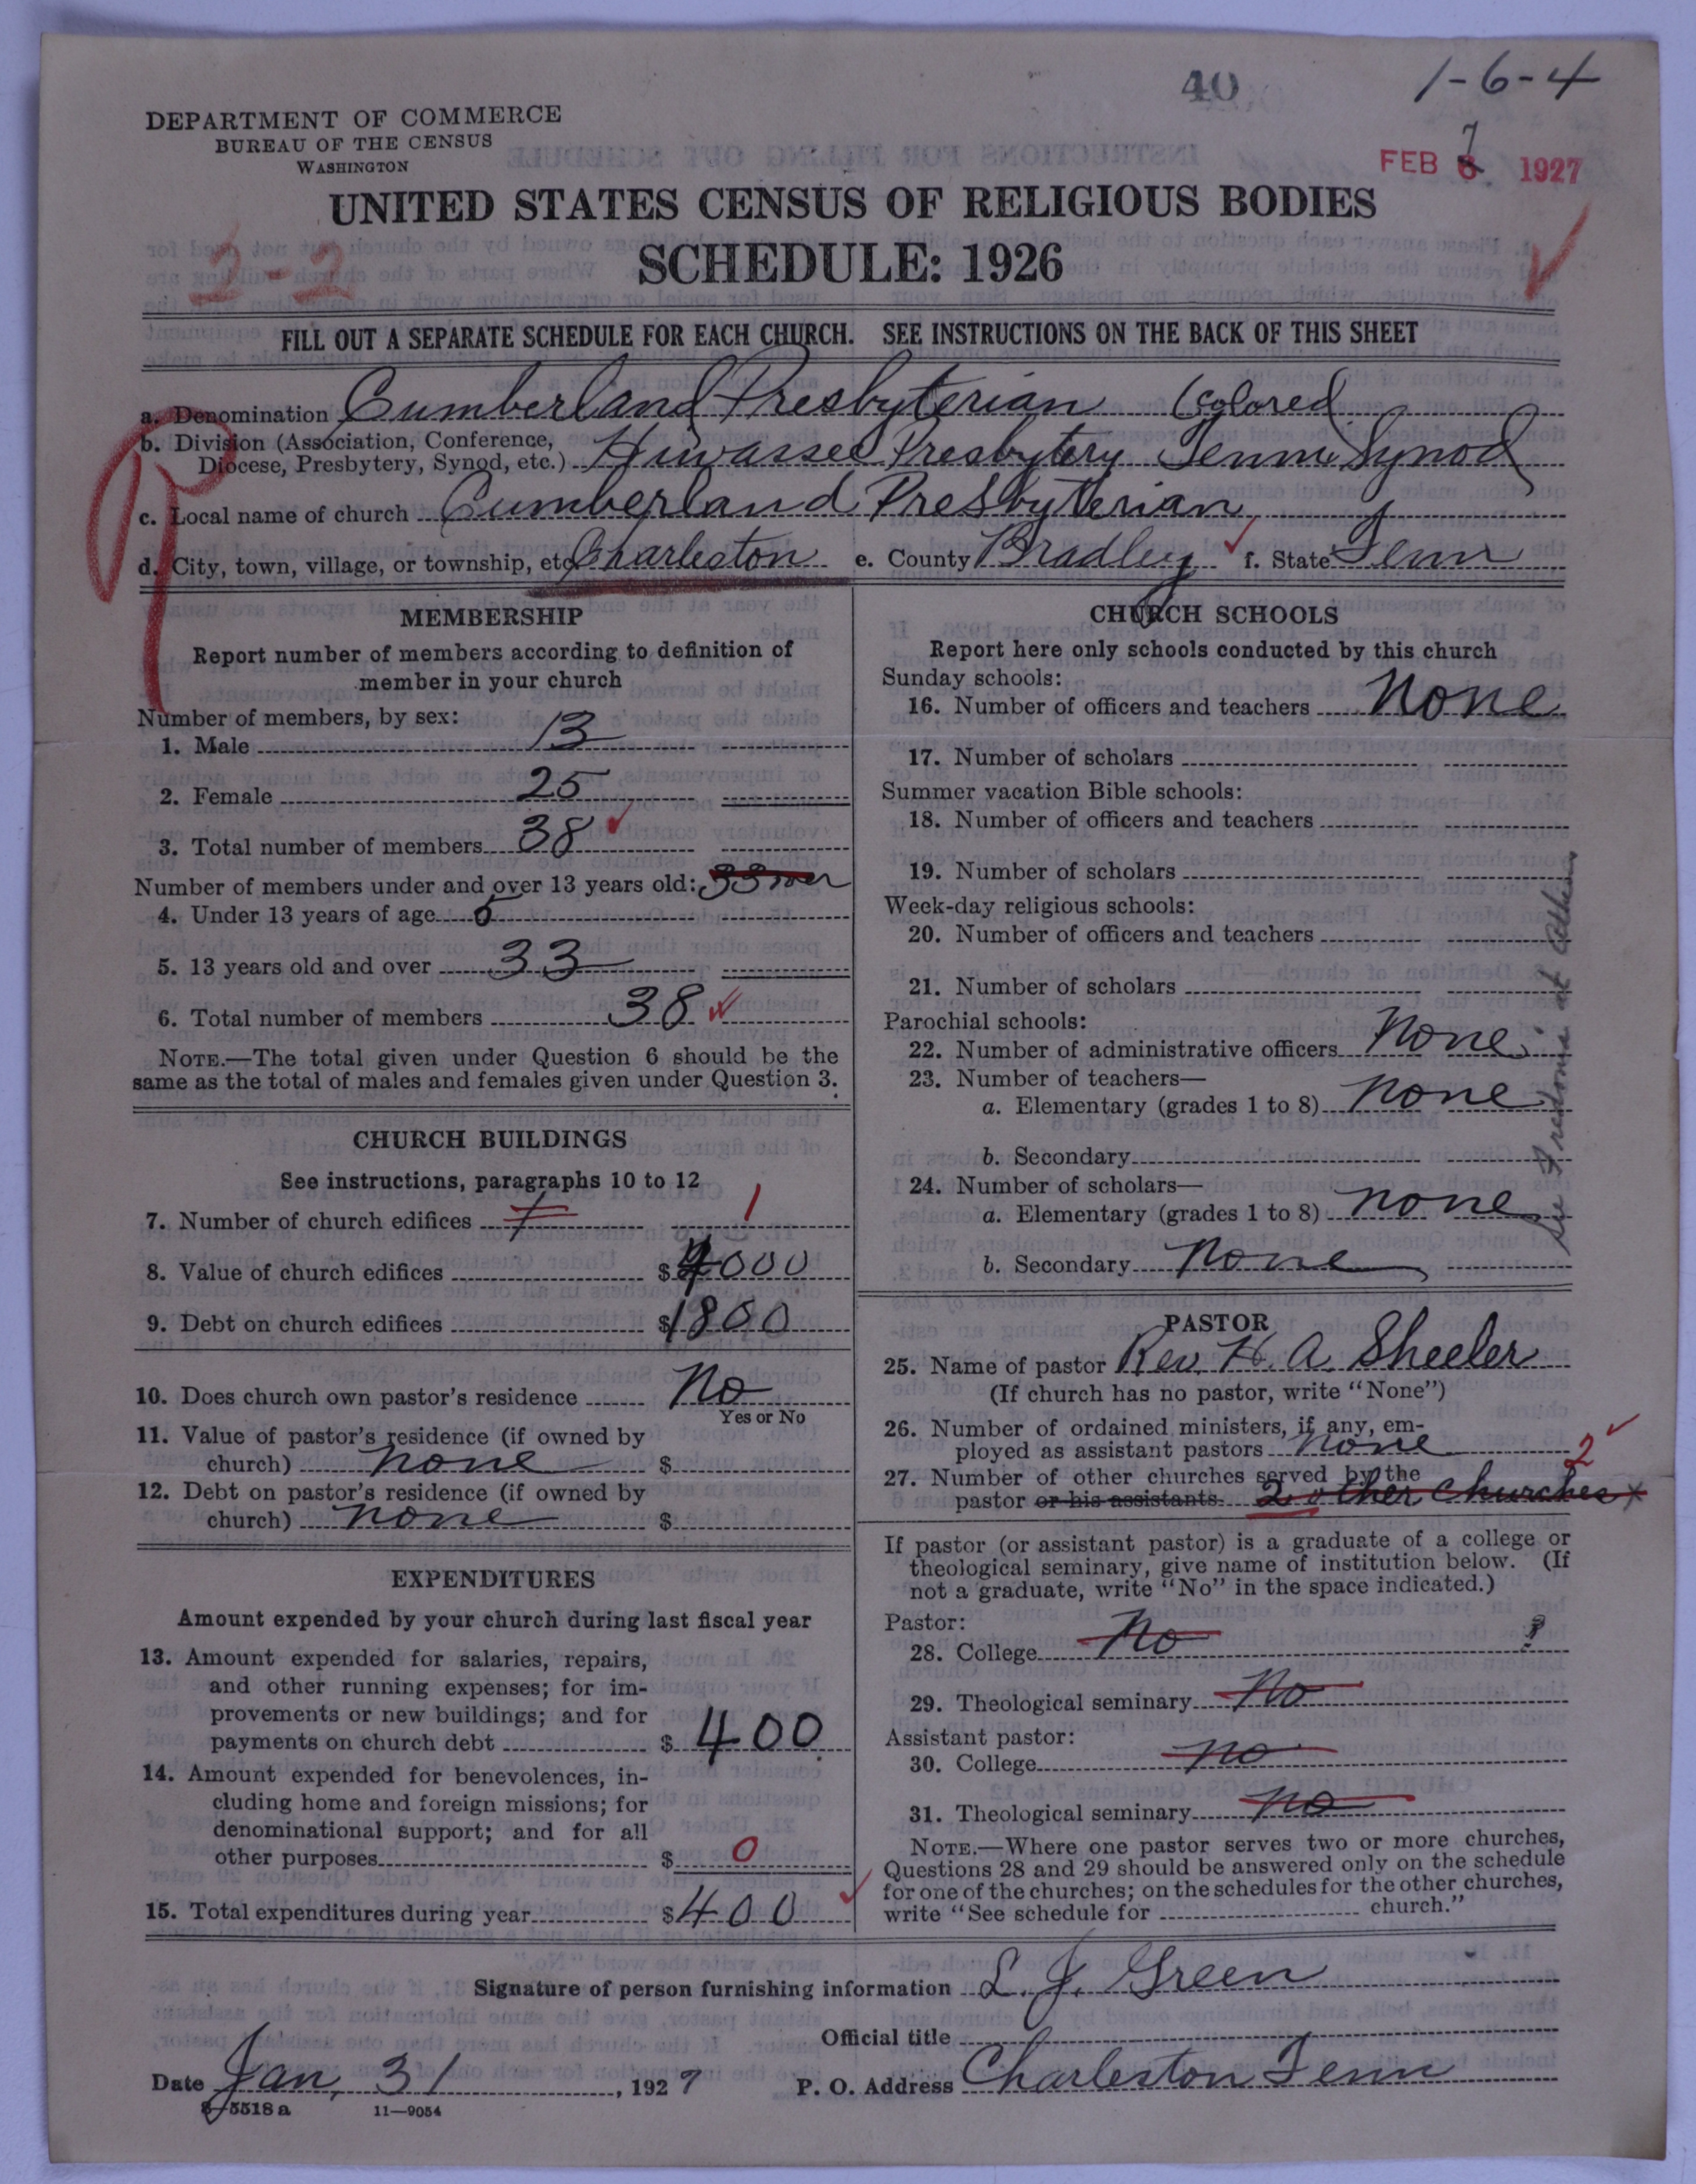 40
1-6-4
DEPARTMENT OF COMMERCE
BUREAU OF THE CENSUS
WASHINGTON
FEB 7 1927
UNITED STATES CENSUS OF RELIGIOUS BODIES
2-2
SCHEDULE: 1926
FILL OUT A SEPARATE SCHEDULE FOR EACH CHURCH. SEE INSTRUCTIONS ON THE BACK OF THIS SHEET
a. Denomination Cumberland Presbyterian (Colored)
b. Division (Association, Conference,
Diocese, Presbytery, Synod, etc.) Hiwassee Presbytery Tenn Synod
c. Local name of church Cumberland Presbyterian
d. City, town, village, or township, etc. Charleston e. County Bradley f. State Tenn
MEMBERSHIP
Report number of members according to definition of
member in your church
Number of members, by sex:
1. Male 13
2. Female 25
3. Total number of members 38
Number of members under and over 13 years old: 33 over
4. Under 13 years of age 5
5. 13 years old and over 33
6. Total number of members 38
NOTE.—The total given under Question 6 should be the
same as the total of males and females given under Question 3.
CHURCH BUILDINGS
See instructions, paragraphs 10 to 12
7. Number of church edifices 1 1
8. Value of church edifices $ 4000
9. Debt on church edifices $ 1800
10. Does church own pastor's residence No
Yes or No
11. Value of pastor's residence (if owned by
church) none $
12. Debt on pastor's residence (if owned by
church) none $
EXPENDITURES
Amount expended by your church during last fiscal year
13. Amount expended for salaries, repairs,
and other running expenses; for im-
provements or new buildings; and for
payments on church debt $ 400
14. Amount expended for benevolences, in-
cluding home and foreign missions; for
denominational support; and for all
other purposes $ 0
15. Total expenditures during year $ 400
CHURCH SCHOOLS
Report here only schools conducted by this church
Sunday schools:
16. Number of officers and teachers None
17. Number of scholars
Summer vacation Bible schools:
18. Number of officers and teachers
19. Number of scholars
Week-day religious schools:
20. Number of officers and teachers
21. Number of scholars
Parochial schools:
22. Number of administrative officers None
23. Number of teachers—
a. Elementary (grades 1 to 8) none
b. Secondary
24. Number of scholars—
a. Elementary (grades 1 to 8) none
b. Secondary none
See at Athens
PASTOR
25. Name of pastor Rev. H. A. Sheeler
(If church has no pastor, write "None")
26. Number of ordained ministers, if any, em-
ployed as assistant pastors none
27. Number of other churches served by the 2
pastor or his assistants 2 other churches x
If pastor (or assistant pastor) is a graduate of a college or
theological seminary, give name of institution below. (If
not a graduate, write "No" in the space indicated.)
Pastor:
28. College No ?
29. Theological seminary No
Assistant pastor:
30. College no
31. Theological seminary no
NOTE.—Where one pastor serves two or more churches,
Questions 28 and 29 should be answered only on the schedule
for one of the churches; on the schedules for the other churches,
write "See schedule for church."
Signature of person furnishing information L. J. Green
Official title
Date Jan, 31, 1927 P. O. Address Charleston Tenn
8-5518 a 11-9054